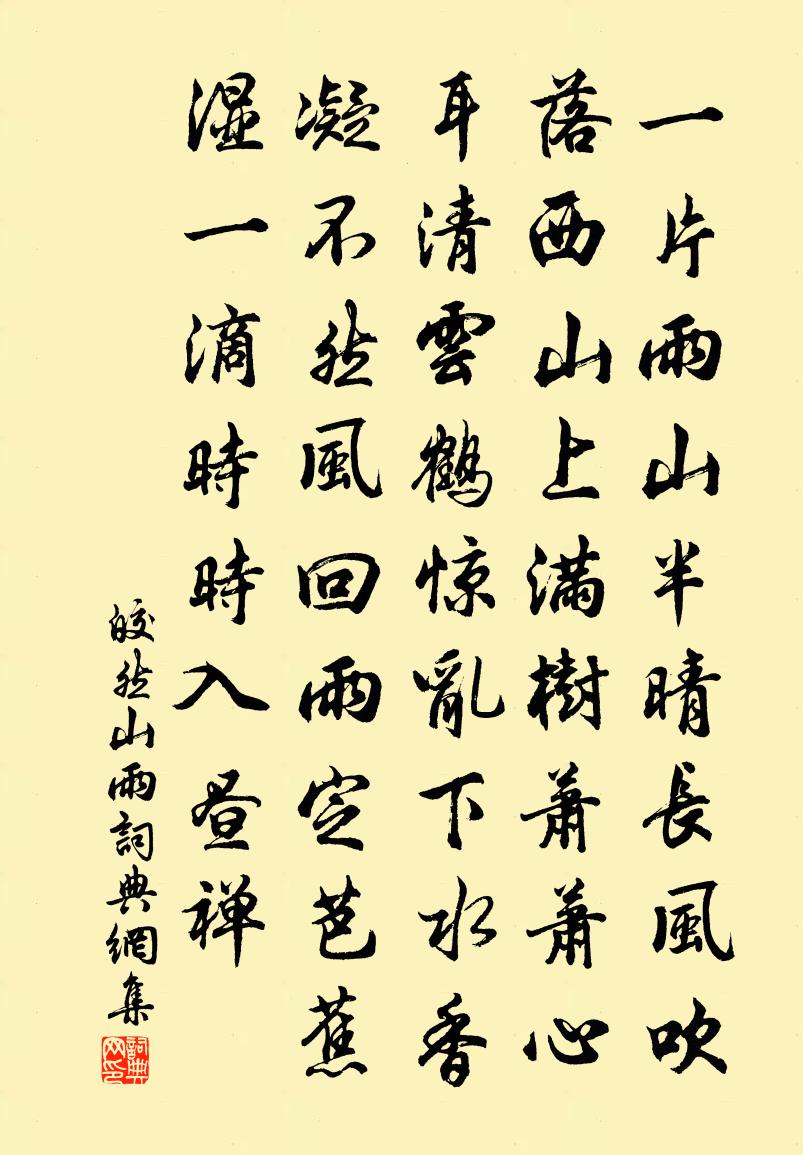 一片雨山半晴長風吹
落西山上滿樹蕭蕭心
耳清雲鶴惊亂下水香
凝不然風回雨定芭蕉
湿一滴時時入昼禅
皎然山雨詞典網集
詞典网印